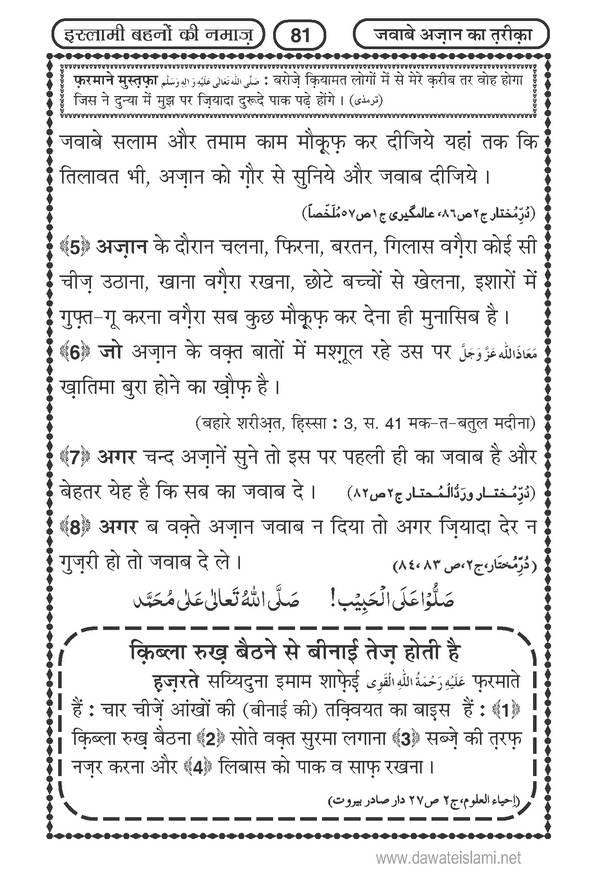 इस्लामी बहनों की नमाज़ 81 जवाबे अज़ान का त़रीक़ा
फ़रमाने मुस्त़फ़ा صَلَّى اللهُ تَعَالٰى عَلَيْهِ وَاٰلِهٖ وَسَلَّم : बरोज़े क़ियामत लोगों में से मेरे क़रीब तर वोह होगा
जिस ने दुन्या में मुझ पर ज़ियादा दुरूदे पाक पढ़े होंगे । (ترمذی)
जवाबे सलाम और तमाम काम मौक़ूफ़ कर दीजिये यहां तक कि
तिलावत भी, अज़ान को ग़ौर से सुनिये और जवाब दीजिये ।
(دُرِّمُختار ج٢ص٨٦، عالمگیری ج١ص٥٧ مُلَخّصاً)
﴾5﴿ अज़ान के दौरान चलना, फिरना, बरतन, गिलास वग़ैरा कोई सी
चीज़ उठाना, खाना वग़ैरा रखना, छोटे बच्चों से खेलना, इशारों में
गुफ़्त-गू करना वग़ैरा सब कुछ मौक़ूफ़ कर देना ही मुनासिब है ।
﴾6﴿ जो अज़ान के वक़्त बातों में मश्ग़ूल रहे उस पर مَعَاذَ اللّٰه عَزَّوَجَلَّ
ख़ातिमा बुरा होने का ख़ौफ़ है ।
(बहारे शरीअ़त, हि़स्सा : 3, स. 41 मक-त-बतुल मदीना)
﴾7﴿ अगर चन्द अज़ानें सुने तो इस पर पहली ही का जवाब है और
बेहतर येह है कि सब का जवाब दे । (دُرِّمُختار و رَدُّالْمُحتار ج٢ص٨٢)
﴾8﴿ अगर ब वक़्ते अज़ान जवाब न दिया तो अगर ज़ियादा देर न
गुज़री हो तो जवाब दे ले । (دُرِّمُختَار،ج٢،ص ٨٣،٨٤)
صَلُّوْا عَلَى الْحَبِيْب! صَلَّى اللّٰهُ تَعَالٰى عَلٰى مُحَمَّد
क़िब्ला रुख़ बैठने से बीनाई तेज़ होती है
ह़ज़रते सय्यिदुना इमाम शाफ़ेई़ عَلَيْهِ رَحْمَةُ اللّٰهِ الْقَوِى फ़रमाते
हैं : चार चीज़ें आंखों की (बीनाई की) तक़्वियत का बाइ़स हैं : ﴾1﴿
क़िब्ला रुख़ बैठना ﴾2﴿ सोते वक़्त सुरमा लगाना ﴾3﴿ सब्ज़े की त़रफ़
नज़र करना और ﴾4﴿ लिबास को पाक व साफ़ रखना ।
(اِحیاء العلوم،ج٢ ص٢٧ دار صادر بیروت)
www.dawateislami.net